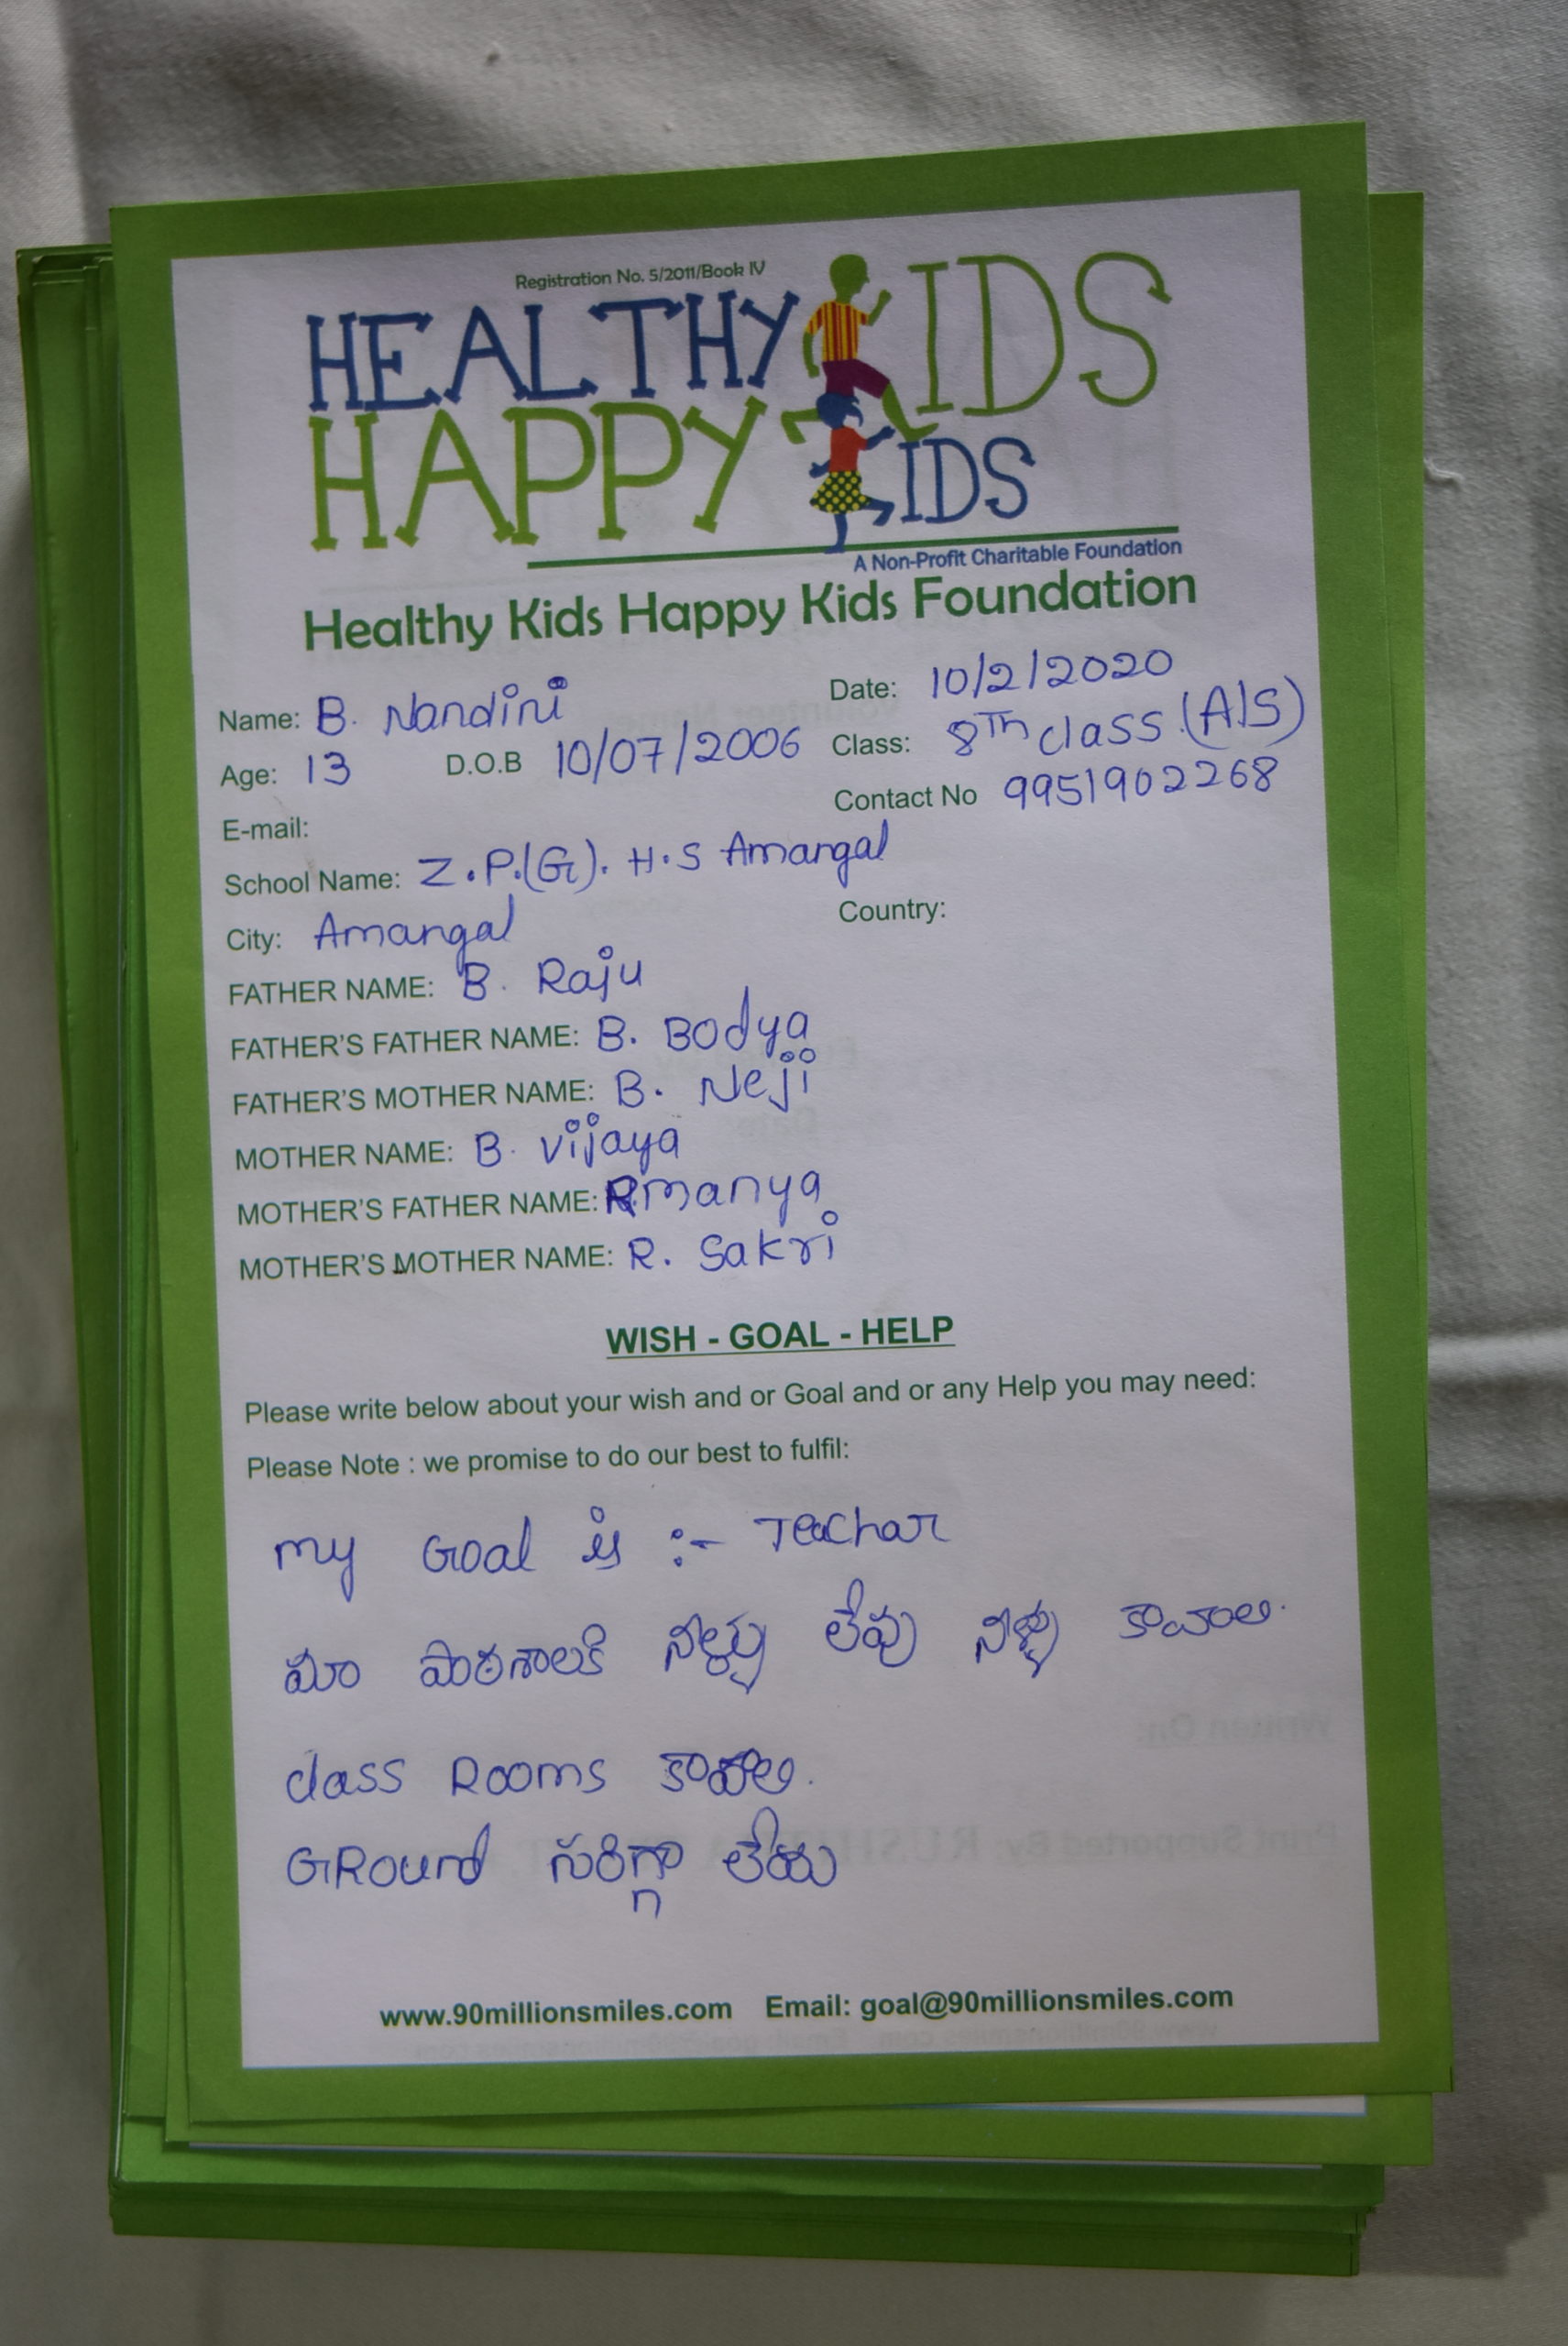 Registration No. 5/2011/Book IV
HEALTHY KIDS
HAPPY KIDS
A Non-Profit Charitable Foundation
Healthy Kids Happy Kids Foundation
Name: B. Nandini Date: 10/2/2020
Age: 13 D.O.B 10/07/2006 Class: 8Th class (A/S)
E-mail: Contact No 9951902268
School Name: Z.P.(G). H.S Amangal
City: Amangal Country:
FATHER NAME: B. Raju
FATHER'S FATHER NAME: B. Bodya
FATHER'S MOTHER NAME: B. Neji
MOTHER NAME: B. vijaya
MOTHER'S FATHER NAME: R.manya
MOTHER'S MOTHER NAME: R. Sakri
WISH - GOAL - HELP
Please write below about your wish and or Goal and or any Help you may need:
Please Note : we promise to do our best to fulfil:
my Goal is :- Teachar
మా పాఠశాలకి నీళ్ళు లేవు నీళ్ళు కావాలి.
class Rooms కావాలి.
GRound సరిగ్గా లేదు
www.90millionsmiles.com Email: goal@90millionsmiles.com